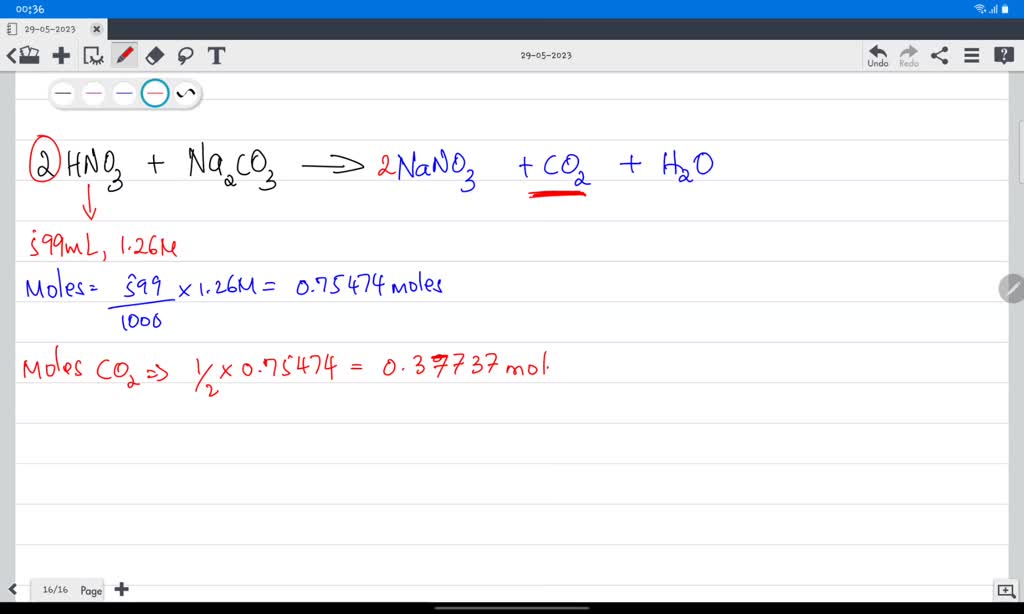 00:36
29-05-2023
T
29-05-2023
Undo
Redo
2HNO3 + Na2CO3 → 2NaNO3 + CO2 + H2O
599mL, 1.26M
Moles = 599/1000 × 1.26M = 0.75474 moles
Moles CO2 ⇒ 1/2 × 0.75474 = 0.37737 mol.
16/16 Page